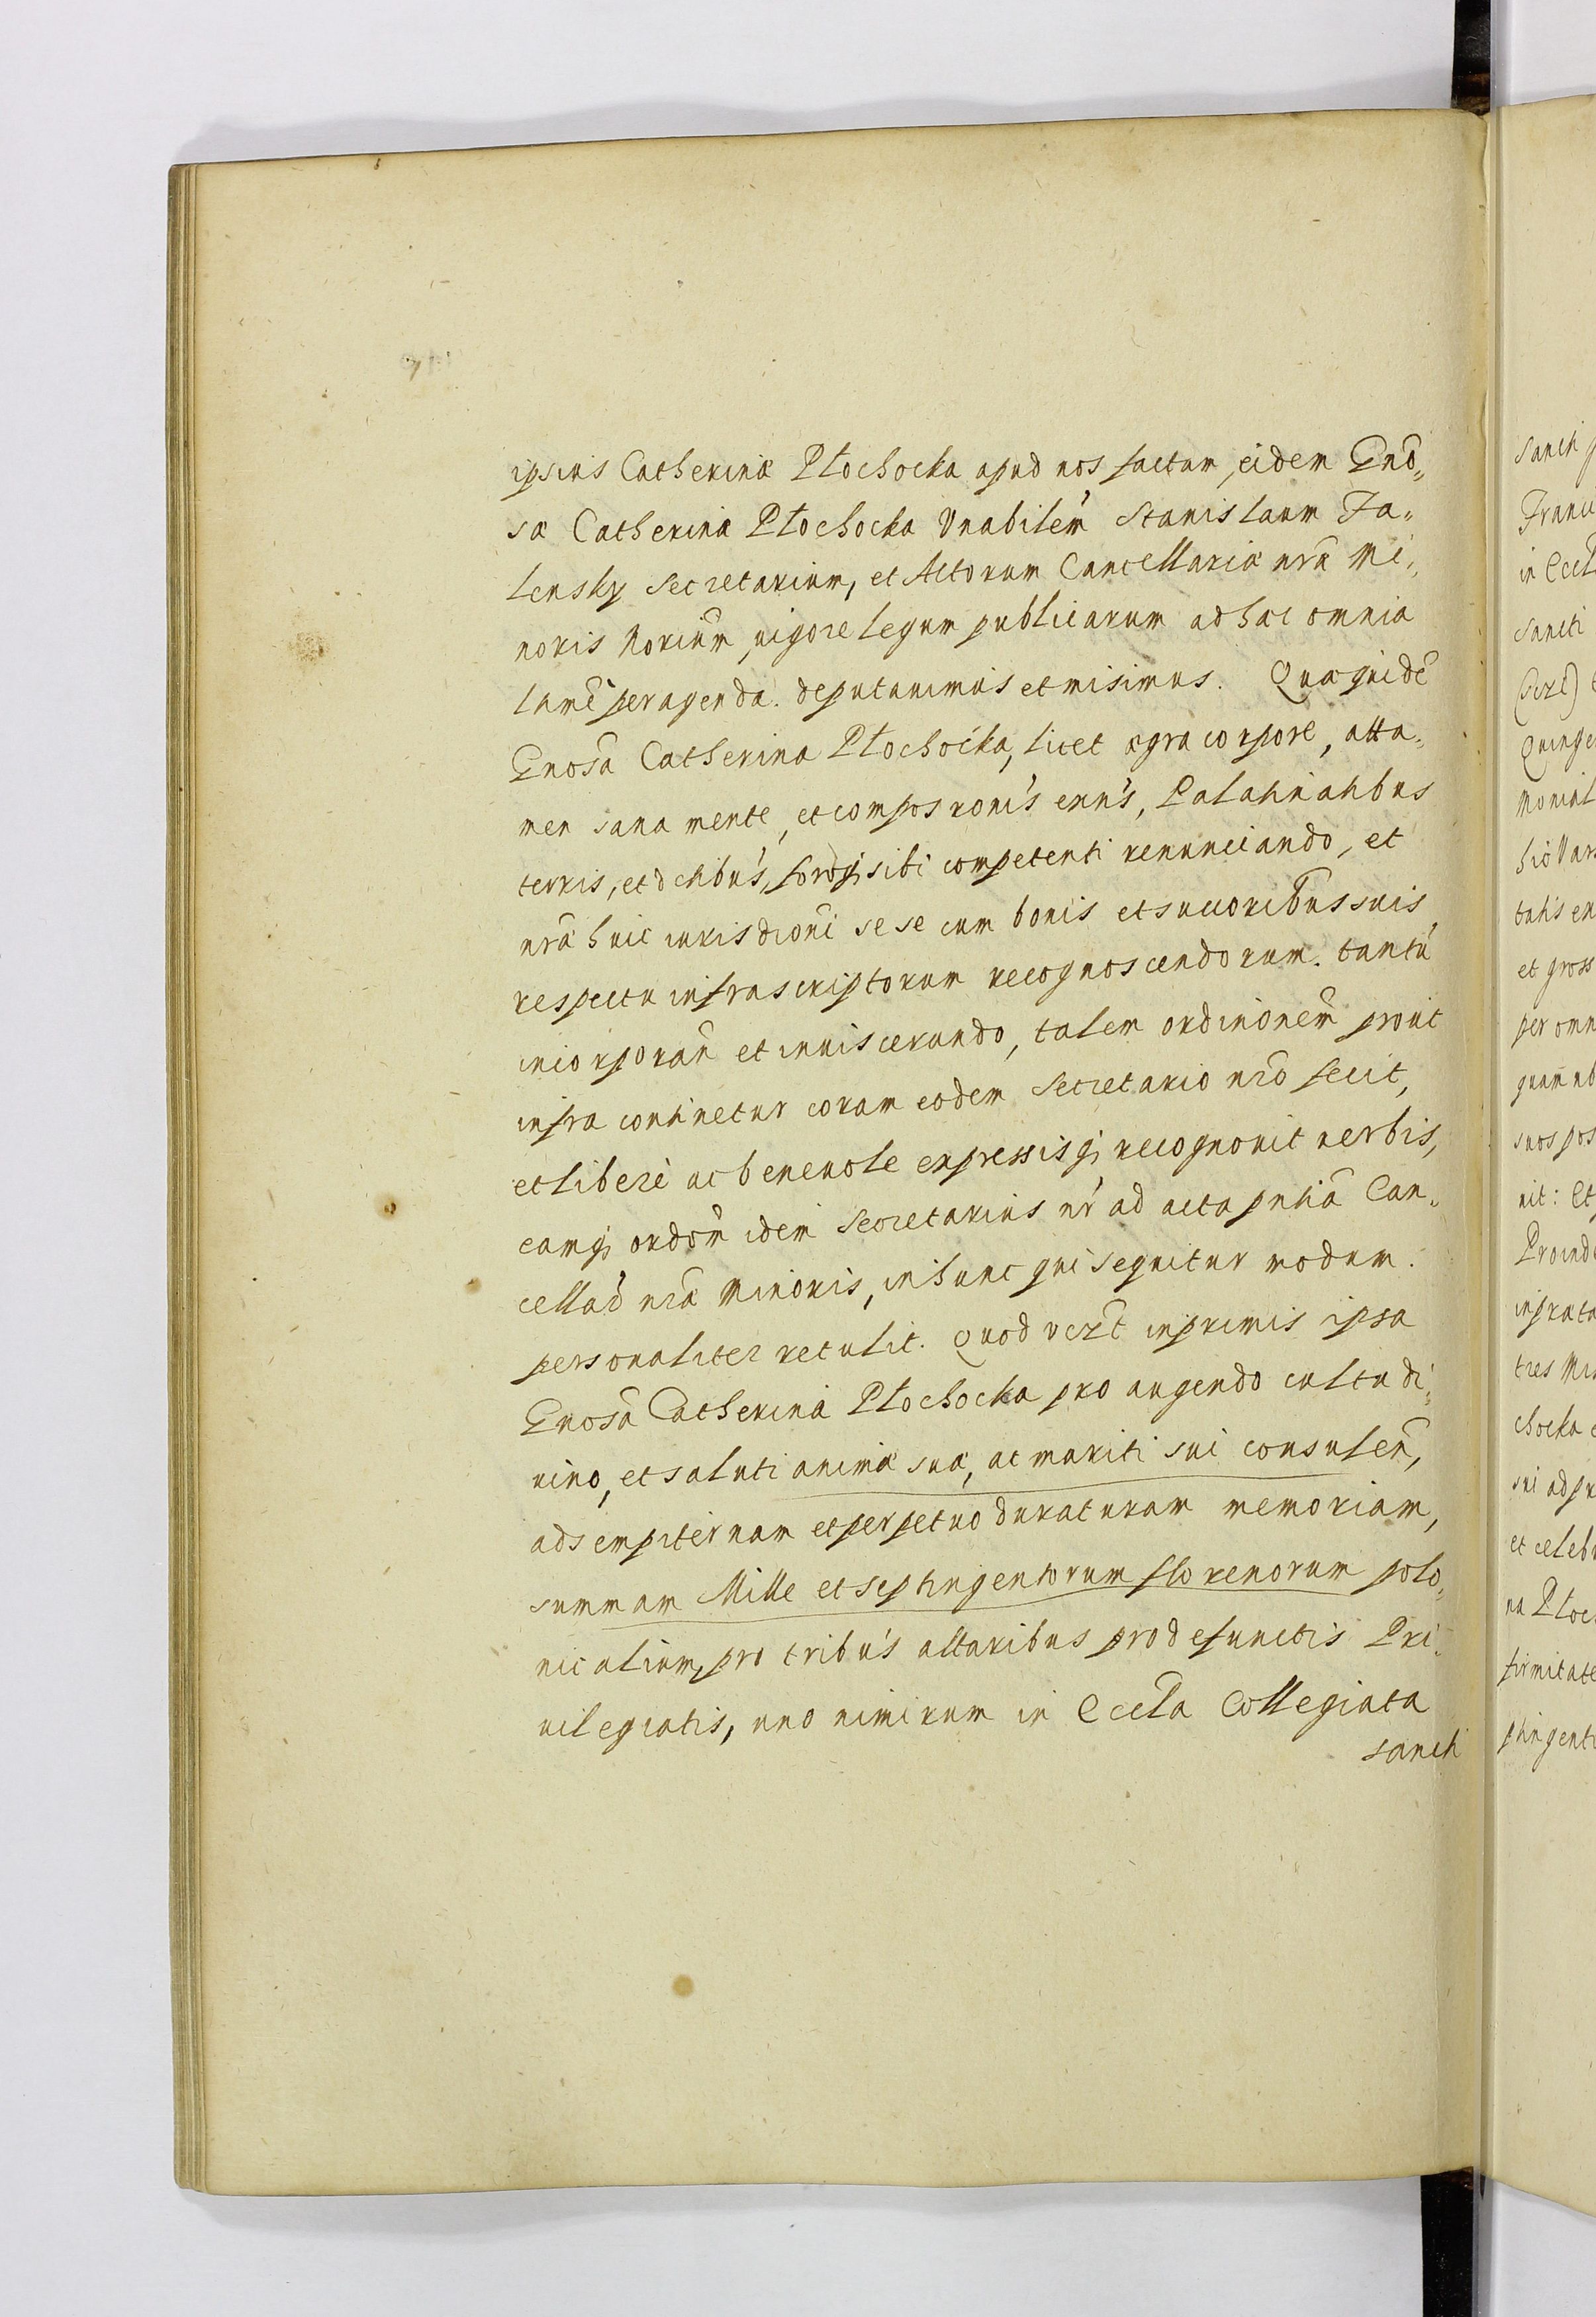 ipsius Catherinæ Płochocka apud nos factam, eidem Gnõ„
sæ Catherinæ Płochocka Vnabilem̃ Stanislaum Ja„
lensky Secretarium, et Actorum Cancellariæ nrã Mi„
noris Norium̃, uigore legum publicarum ad hæc omnia
lamẽ peragenda. deputauimus et misimus. Quæ quidẽ
Gnosã Catherina Płochocka, licet ægra corpore, atta„
men sana mente, et compos ronis exñs, Palatinatibus
terris, et dctibus, foroq; sibi competenti renunciando, et
nrã huic iurisdioni sese cum bonis et succoribus suis
respectu infrascriptorum recognoscendorum. tantũ
incorporañ et inuiscerando, talem ordinonem̃ prout
infra continetur coram eodem Secretario nrõ fecit,
et liberè ac beneuole expressisq; recognouit uerbis,
eamq; ordom̃ idem Secretarius nr̃ ad acta pntiã Can„
cellar̃ nrã Minoris, in hunc qui sequitur modum.
personaliter retulit. Quod uerĩ inprimis ipsa
Gnosã Catherina Płochocka pro augendo cultu di„
uino, et saluti animæ suæ, ac mariti sui consuleñ,
ad sempiternam et perpetuo duraturam memoriam,
summam Mille et septingentorum florenorum polo„
nicalium, pro tribus altaribus pro defunctis Pri„
uilegiatis, uno nimirum in Eccła Collegiata
Sancti
Sancti
in Eccł
Sancti
Quinge
et gross
per omn
uit: Et
Proind
tres Mi
chocka
sui ad p
et celeb
na Płoc
firmitate
ptingent